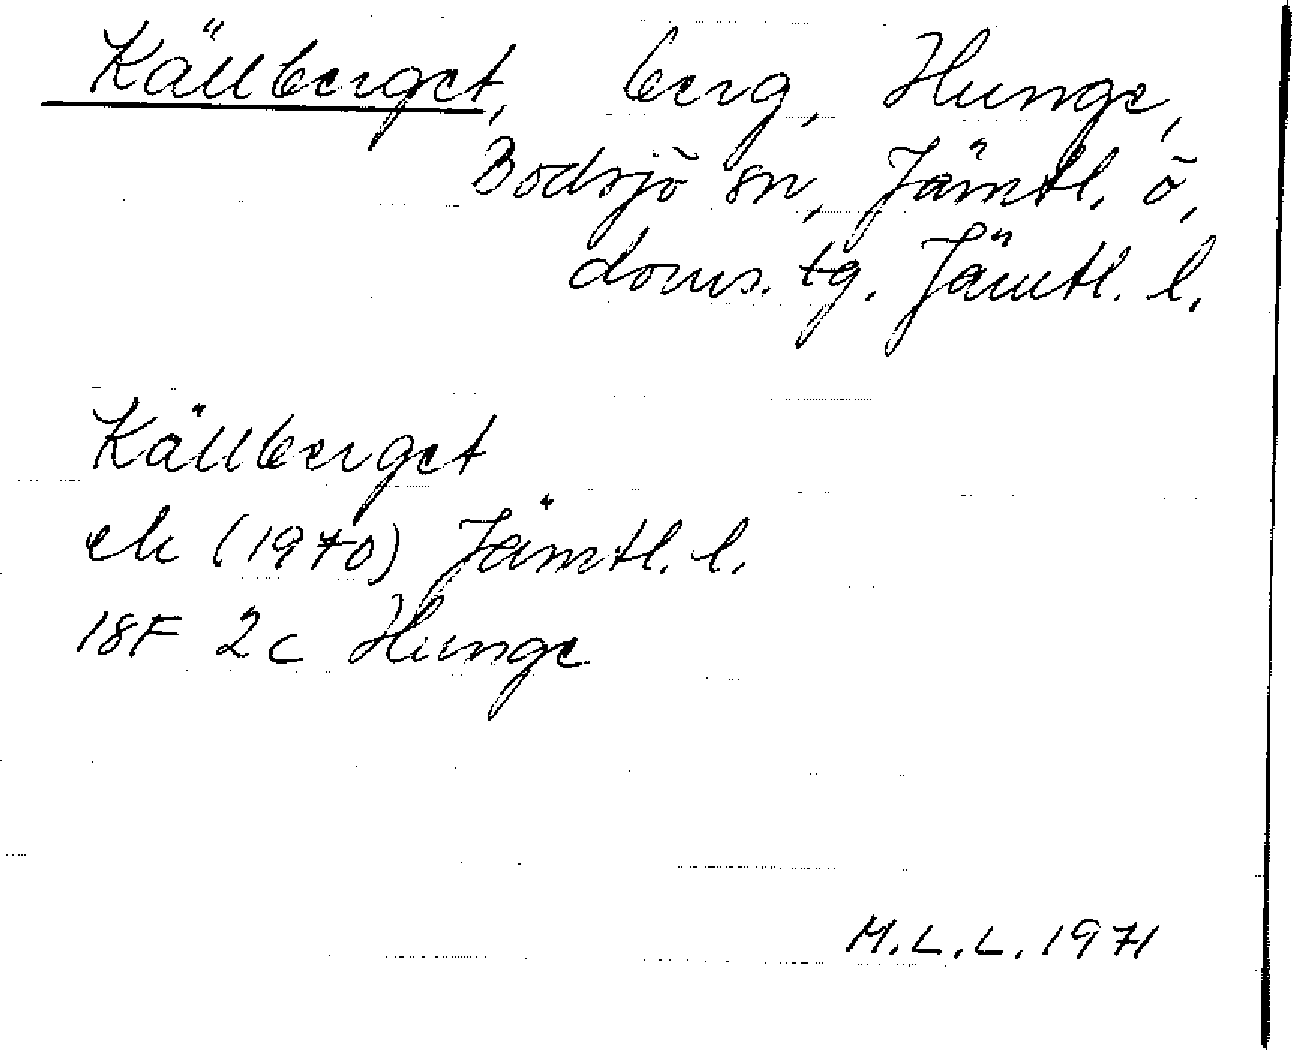 Källberget, berg, Hunge,
Bodsjö sn, Jämtl. ö,
doms. tg. Jämtl. l.
Källberget
ek (1970) Jämtl. l.
18F 2c Hunge
M.L.L. 1971